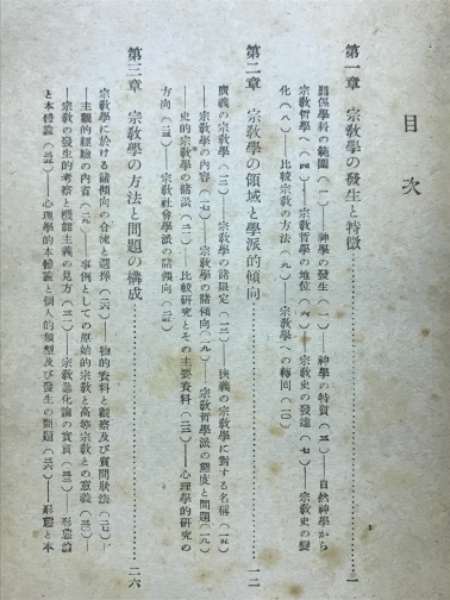 目次
第一章 宗教學の發生と特徵……一
關係學科の範圍(一)――神學の發生(一)――神學の特質(三)――自然神學から
宗教哲學へ(四)――宗教哲學の地位(六)――宗教史の發達(七)――宗教史の變
化(八)――比較宗教の方法(九)――宗教學への轉回(一〇)
第二章 宗教學の領域と學派的傾向……一二
廣義の宗教學(一二)――宗教學の諸限定(一三)――狹義の宗教學に對する名稱(一五)
――宗教學の內容(一七)――宗教學の諸傾向(一九)――宗教哲學派の態度と問題(一九)
――史的宗教學の諸派(二一)――比較硏究とその主要資料(二二)――心理學的硏究の
方向(二四)――宗教社會學派の諸傾向(二四)
第三章 宗教學の方法と問題の構成……二六
宗教學に於ける諸傾向の合流と選擇(二六)――物的資料と觀察及び質問狀法(二七)―
―主觀的經驗の內省(二九)――事例としての原始的宗教と高等宗教との意義(三〇)―
―宗教の發生的考察と機能主義の見方(三一)――宗教進化論の實質(三二)――形態論
と本體論(三五)――心理學的本體論と個人的類型及び發生の問題(三六)――形態と本